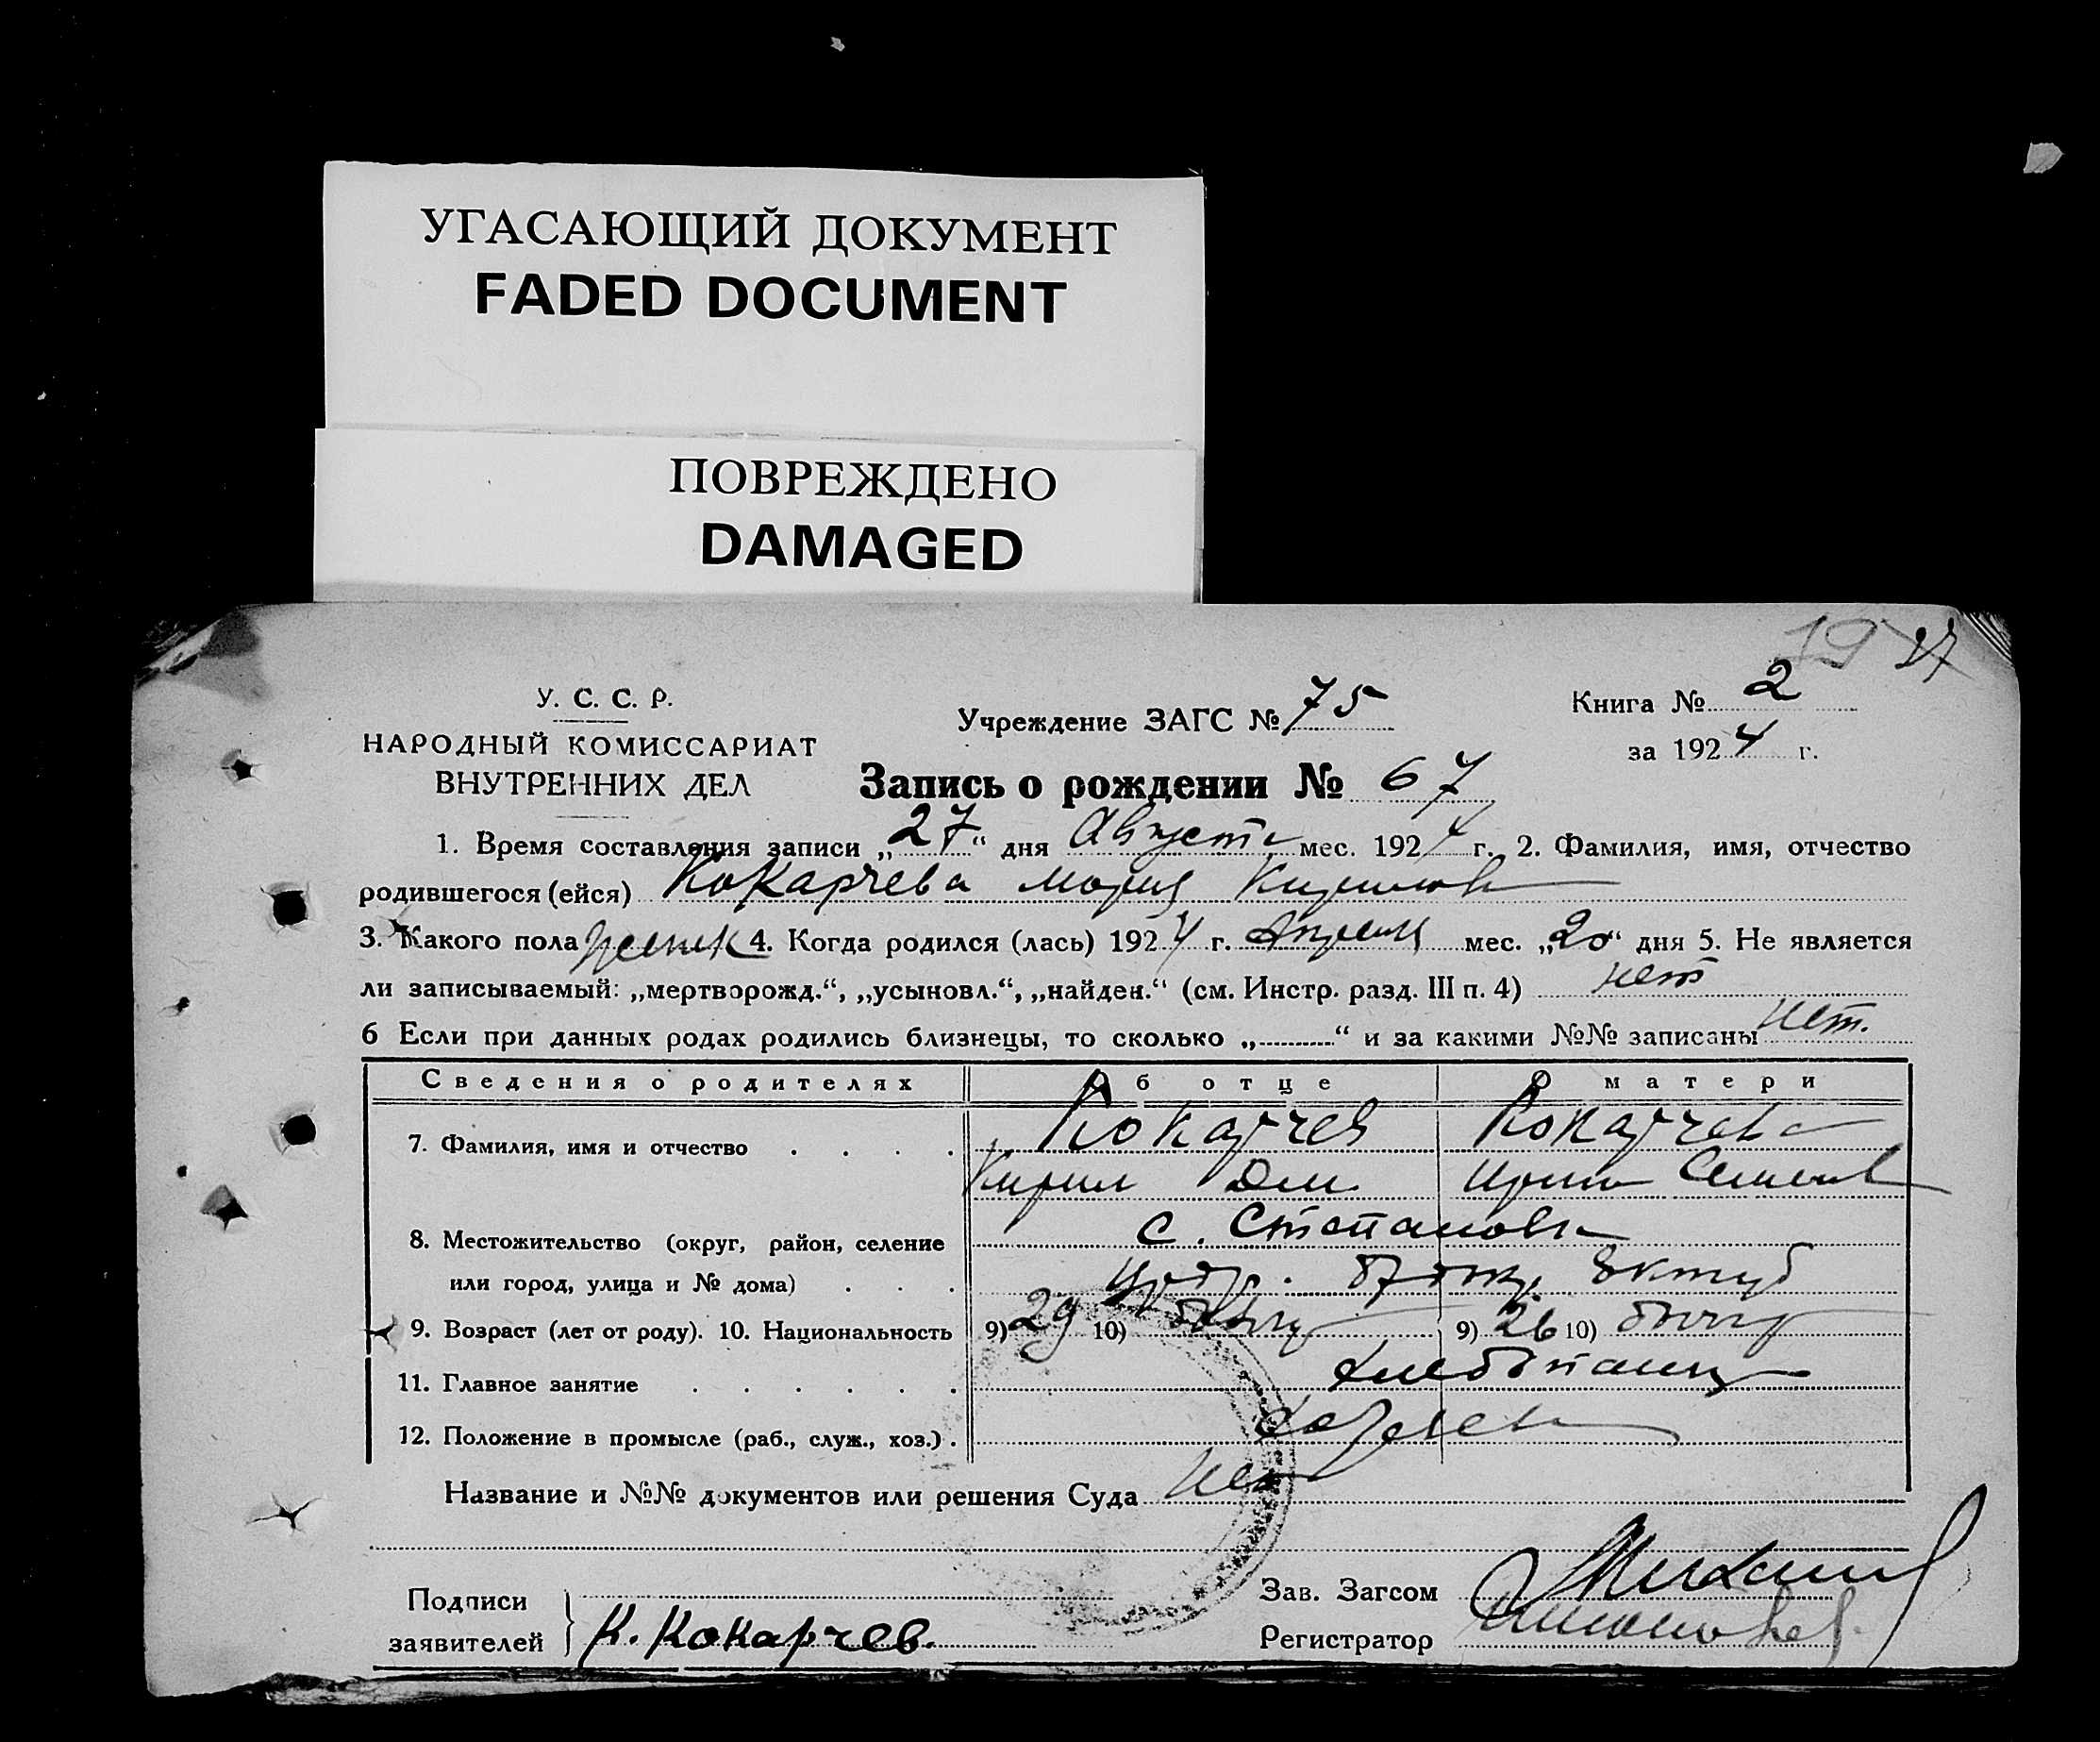 УГАСАЮЩИЙ ДОКУМЕНТ
FADED DOCUMENT
ПОВРЕЖДЕНО
DAMAGED
У. С. С. Р.
НАРОДНЫЙ КОМИССАРИАТ
ВНУТРЕННИХ ДЕЛ
Учреждение ЗАГС № 75
Книга № 2
за 1924 г.
Запись о рождении № 67
1. Время составления записи „27“ дня Августа мес. 1924 г. 2. Фамилия, имя, отчество
родившегося (ейся) Кокарчева Мария Кирилов
3. Какого пола женск 4. Когда родился (лась) 1924 г. Апреля мес. „20“ дня 5. Не является
ли записываемый: „мертворожд.“, „усыновл.“, „найден.“ (см. Инстр. разд. III п. 4) нет
6 Если при данных родах родились близнецы, то сколько „ “ и за какими №№ записаны нет.
Сведения о родителях Об отце О матери
7. Фамилия, имя и отчество Кокарчев Кокарчева
Кирил Дем. Ирина Семенов
8. Местожительство (округ, район, селение с. Степановка
или город, улица и № дома)
9. Возраст (лет от роду). 10. Национальность 9) 29 10) 9) 26 10)
11. Главное занятие хлебопашец
12. Положение в промысле (раб., служ., хоз.). хозяева
Название и №№ документов или решения Суда нет
Подписи
заявителей К. Кокарчев.
Зав. Загсом
Регистратор